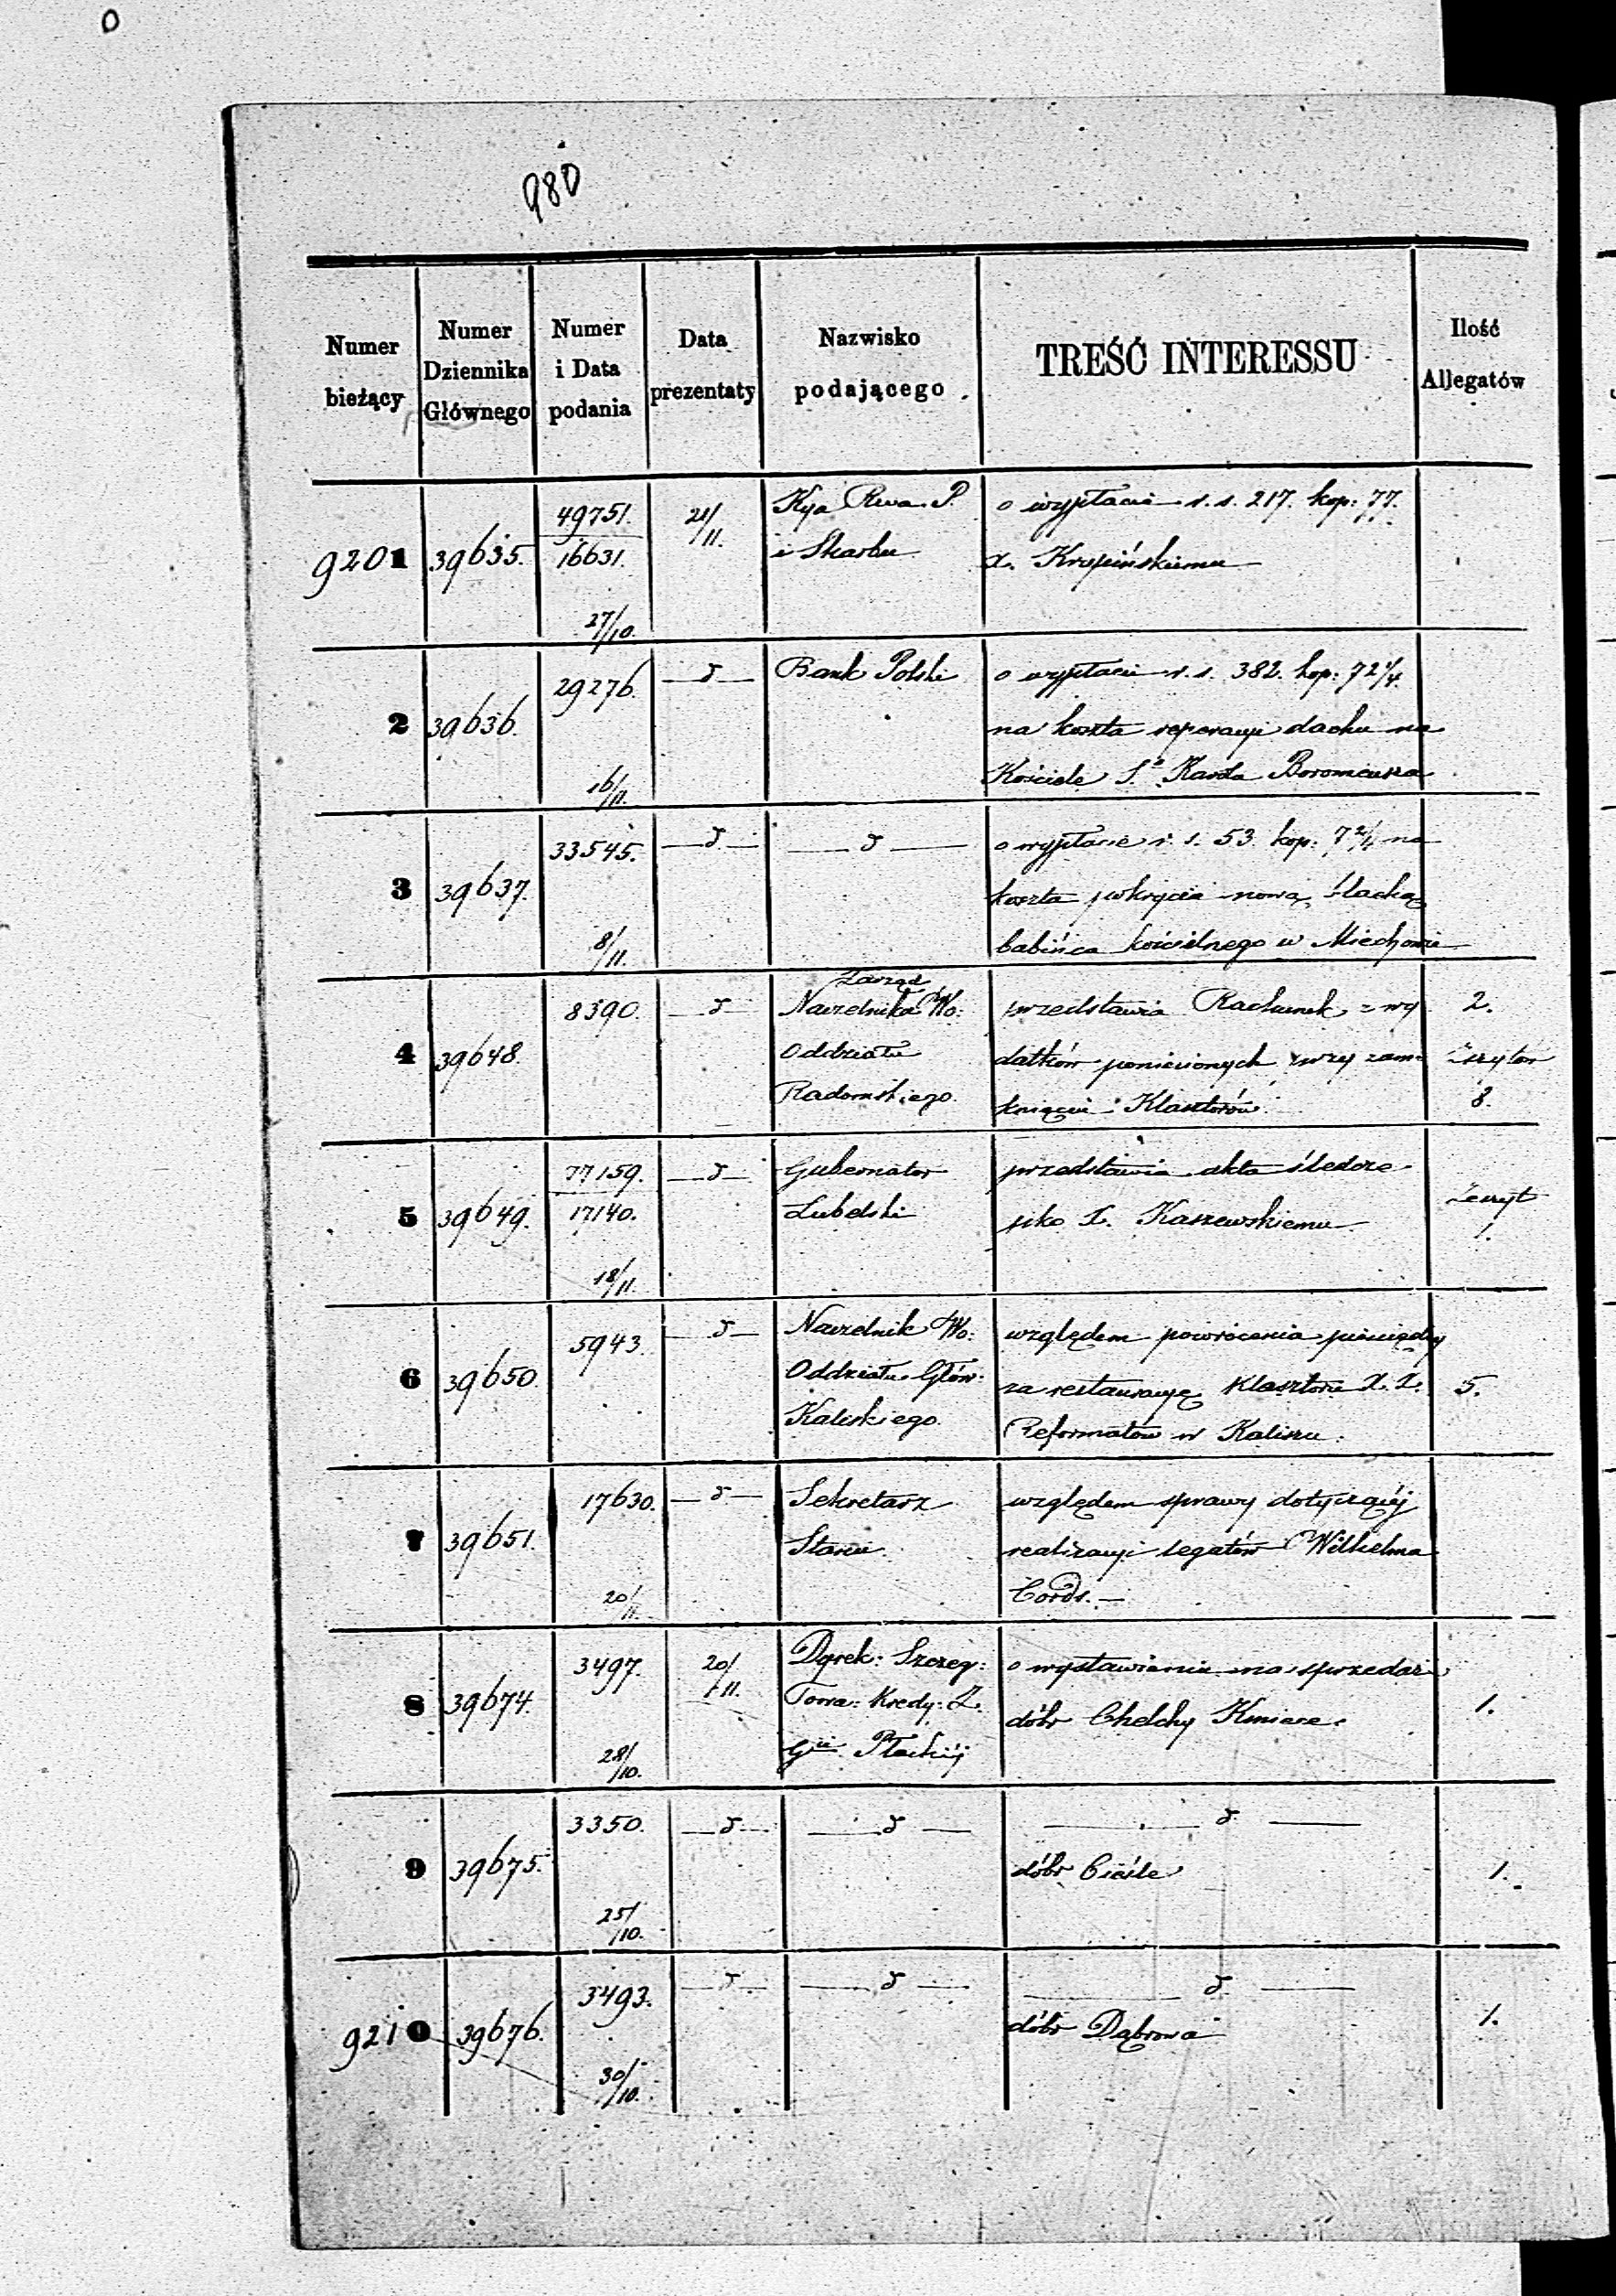 980
Numer bieżący
Numer Dziennika Głównego
Numer i Data podania
Data prezentaty
Nazwisko podającego
TREŚĆ INTERESSU
Ilość Allegatów
9201 39635. 49751. 21/11. Kya Rwa. P. o wypłacie r. s. 217. kop: 77.
16631. i Skarbu X. Krupińskiemu
27/10.
2 39636. 29276. d Bank Polski o wypłacie r. s. 382. kop: 72 1/4.
na koszta reperacyi dachu na
16/11. Kościele Sº Karola Boromeusza
3 39637. 33545. d d o wypłacie r. s. 53 kop: 7 2/4 na
koszta pokrycia nową blachą
8/11. babińca kościelnego w Miechowie
Zarząd
4 39648. 8390. d Naczelnika Wo: przedstawia Rachunek z wy 2.
Oddziału datków poniesionych przy zam= Zeszytów
Radomskiego. knięciu Klasztorów. 8.
5 39649. 77159. d Gubernator przedstawia akta śledcze
17140. Lubelski X. Kaszewskiemu Zeszyt
18/11. 1.
6 39650. 5943. d Naczelnik Wo: względem powrócenia pieniędzy
Oddziału Głów: za restauracyę Klasztoru X. X. 5.
Kaliskiego. Reformatów w Kaliszu.
7 39651. 17630. d Sekretarz względem sprawy dotyczącéj
Stanu. realizacyi legatów Wilhelma
20/11. Cords. —
8 39674. 3497. 20/11. Dyrek: Szczeg: o wystawieniu na sprzedaż
Towa: Kredy: Z. dóbr Chełchy Kmiece. 1.
28/10. Gii Płockiéj
9 39675. 3350. d d d
dóbr Cieśle 1.
25/10.
9210 39676. 3493. d d d
dóbr Dąbrowa 1.
30/10.